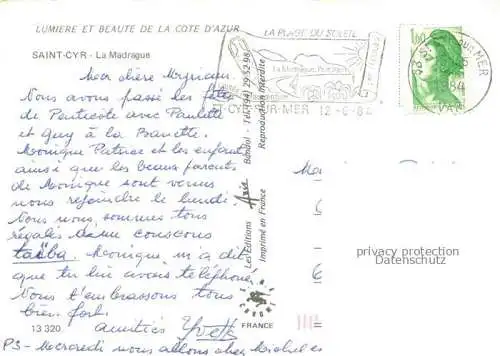 LUMIERE ET BEAUTE DE LA COTE D'AZUR
SAINT-CYR - La Madrague
Mon chère Myriam.
Nous avons passé les fêtes
de Pentecote avec Paulette
et Guy à la Banette.
Monique Patrice et les enfants
ainsi que les beaux parents
de Monique sont venus
nous rejoindre le lundi.
Nous nous sommes tous
régalés d'un couscous
Monique m'a dit
que tu lui avais téléphoné
Nous t'embrassons tous
bien fort.
13 320
amitiés Yvette
PS - Mercredi nous allons chez Michel et
Les Editions Aris Bandol - Tél. (94) 29.52.98
Imprimé en France
Reproduction interdite
FRANCE
LA PLAGE DU SOLEIL
La Madrague
ST-CYR-SUR-MER 12-6-84
1,60
SUR MER
84
VAR
privacy protection
Datenschutz